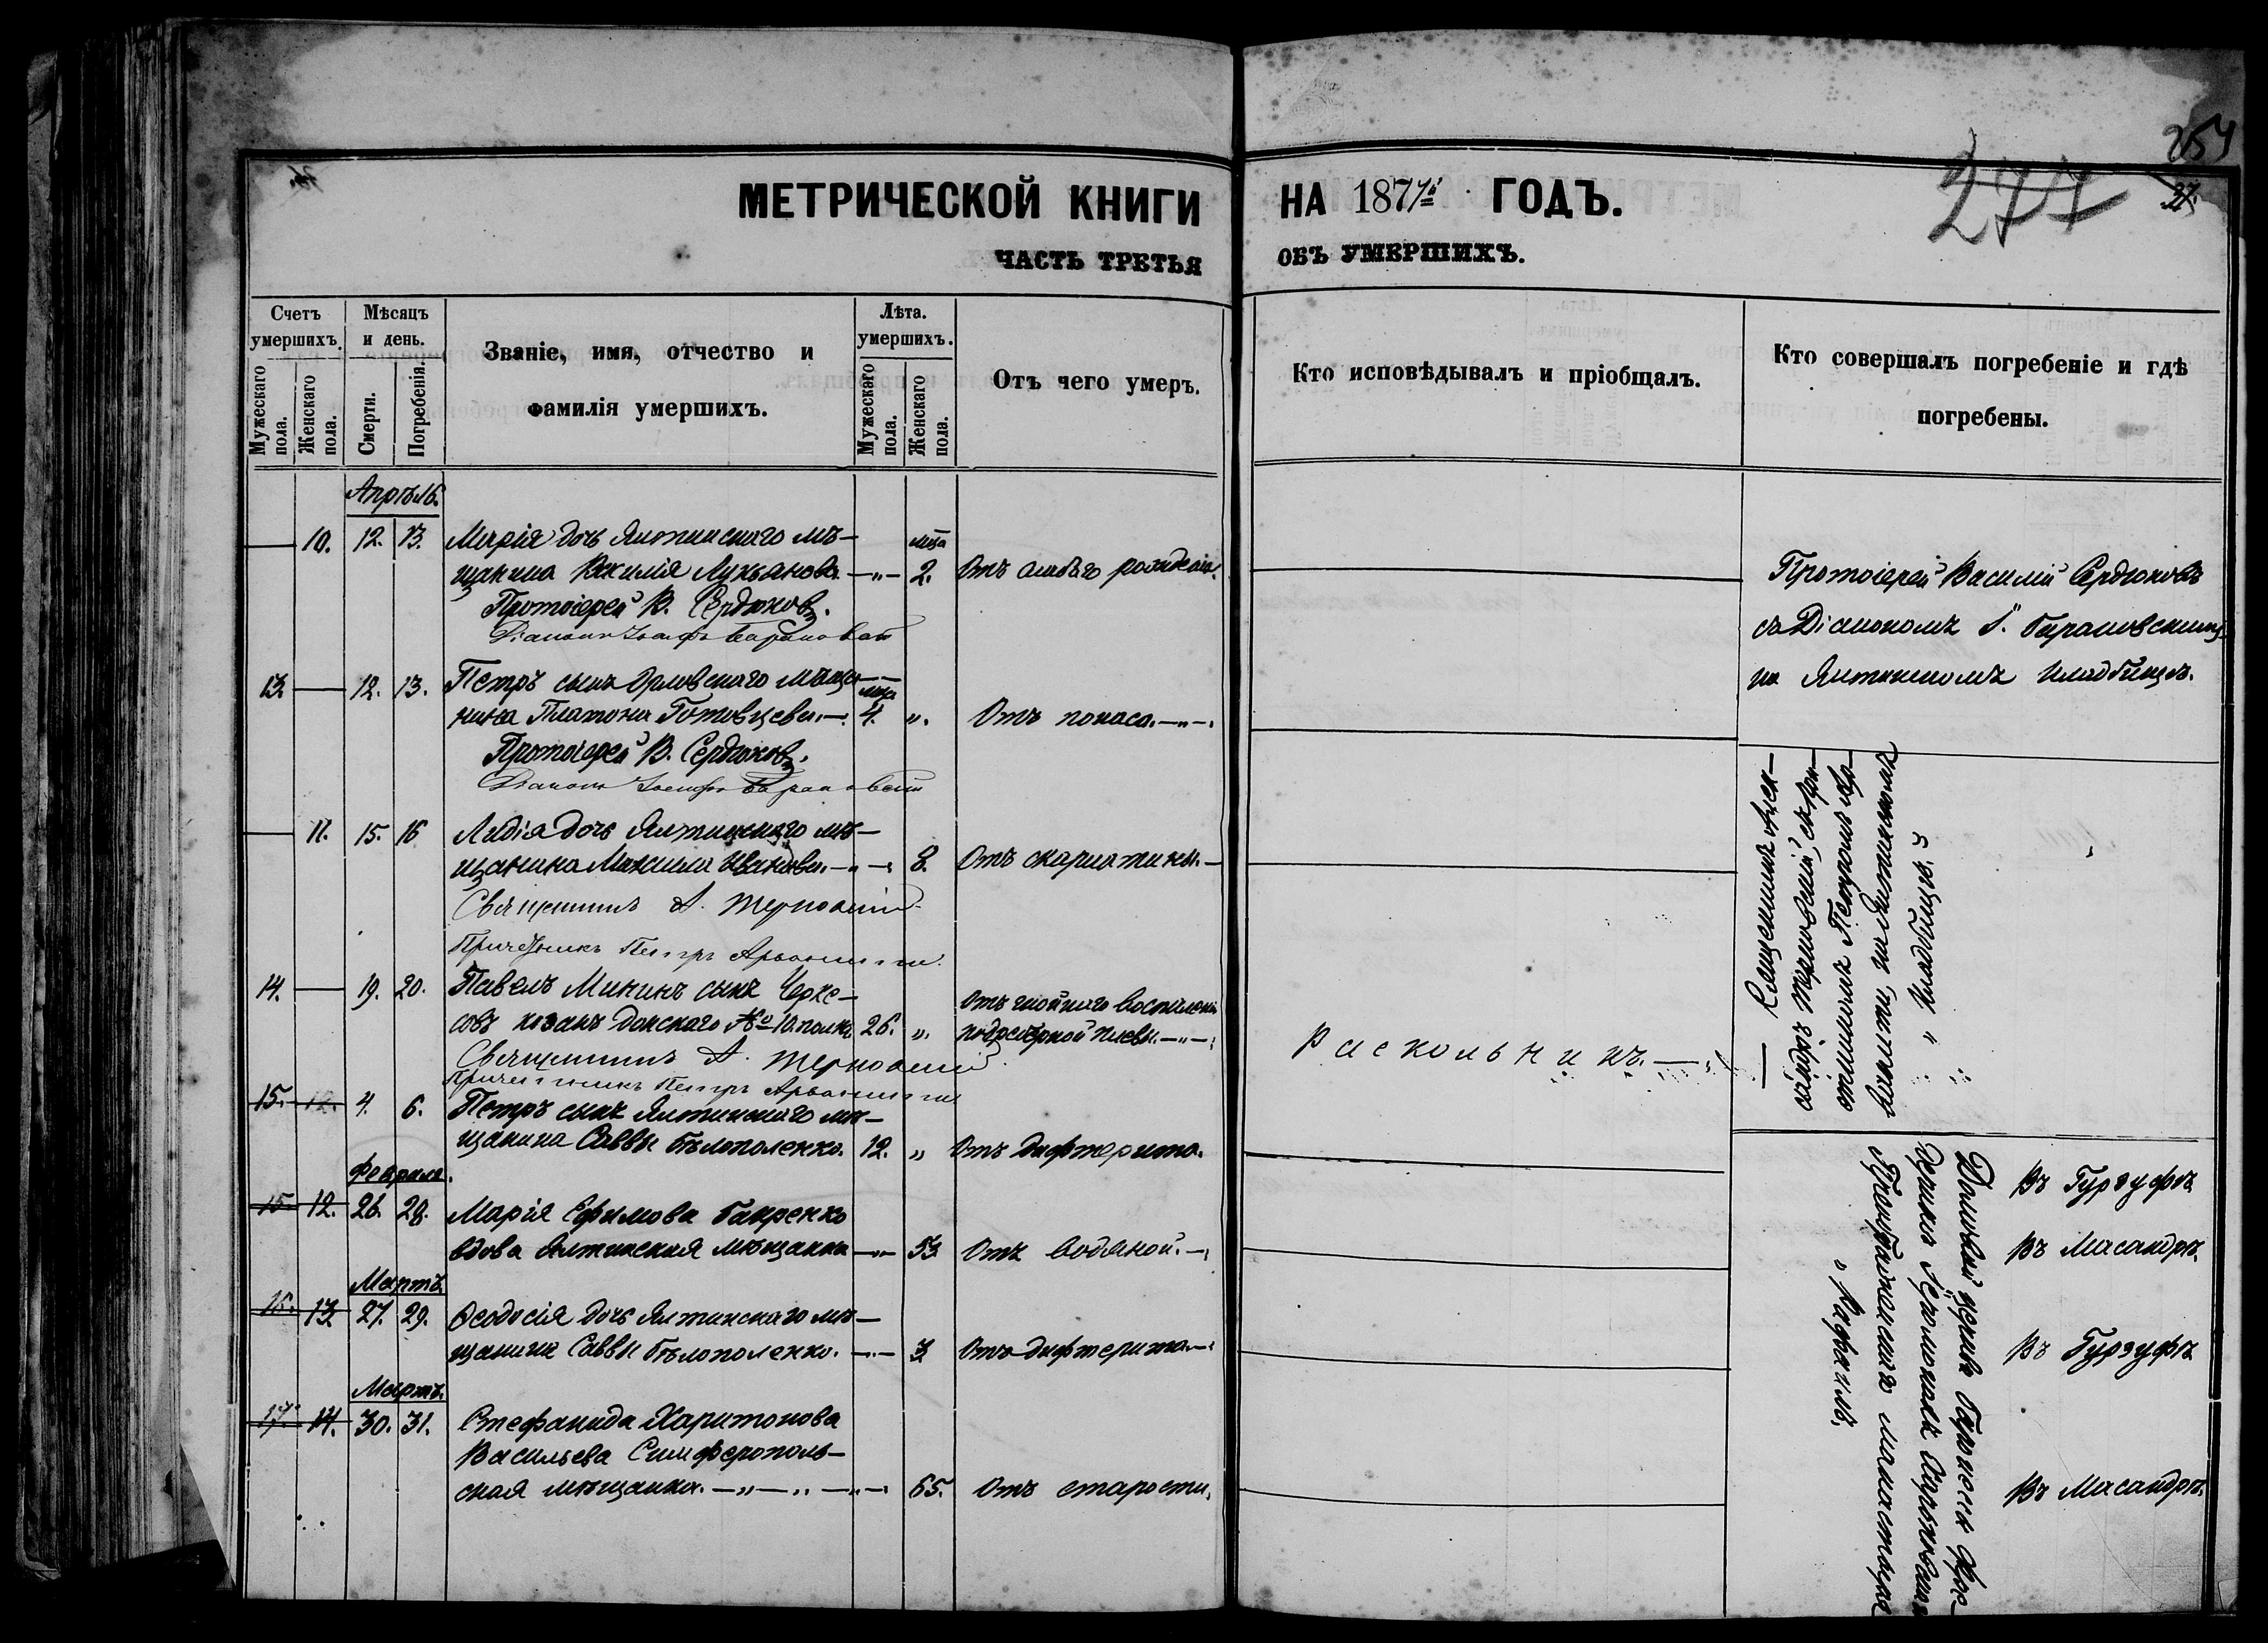 254
277
27.
МЕТРИЧЕСКОЙ КНИГИ НА 187 ГОДЪ.
ЧАСТЬ ТРЕТЬЯ ОБЪ УМЕРШИХЪ.
Счетъ умершихъ.
Мужескаго пола.
Женскаго пола.
Мѣсяцъ и день.
Смерти.
Погребенія.
Званіе, имя, отчество и
фамилія умершихъ.
Лѣта умершихъ.
Мужескаго пола.
Женскаго пола.
Отъ чего умеръ.
Кто исповѣдывалъ и пріобщалъ.
Кто совершалъ погребеніе и гдѣ
погребены.
Апрѣль.
10. 12. 13. Марія дочь Ялтинскаго мѣ-
щанина Лукьянова 2. Отъ слабаго рожденія.
Протоіерей В. Сердюковъ.
Діаконъ Іосифъ Барановскій
Протоіерей Василій Сердюковъ
съ Діакономъ І. Барановскимъ
на Ялтинскомъ кладбищѣ.
13. 12. 13. Петръ сынъ Орловскаго мѣща-
нина Платона Готовцева. 4. „ Отъ поноса.
Протоіерей В. Сердюковъ.
Діаконъ Іосифъ Барановскій
11. 15. 16 Лидія дочь Ялтинскаго мѣ-
щанина Максима Иванова. 8. Отъ скарлатины.
Священникъ А. Терновскій
Причетникъ Петръ
14. 19. 20. Павелъ Мининъ сынъ Черке-
совъ козакъ Донскаго № 10. полка 26. „ Отъ гнойнаго воспаленія
плевы.
Раскольникъ.
Священникъ А. Терновскій
Причетникъ Петръ
Священникъ Алек-
сандръ Терновскій, съ при-
четникомъ Петромъ
на Ялтинскомъ
кладбищѣ.
15. 12. 4. 6. Петръ сынъ Ялтинскаго мѣ-
щанина Саввы Бѣлополенко. 12. „ Отъ дифтерита.
Въ Гурзуфѣ
Февраля.
15. 12. 26. 28. Марія Ефимова Гавренко
вдова Ялтинская мѣщанка 53 Отъ водяной.
Въ Масандрѣ.
Мартъ.
16. 13. 27. 29. Феодосія дочь Ялтинскаго мѣ-
щанина Саввы Бѣлополенко. 3 Отъ дифтерита.
Въ Гурзуфѣ
Мартъ.
17. 14. 30. 31. Стефанида Харитонова
Васильева Симферополь-
ская мѣщанка. 65. Отъ старости.
Въ Масандрѣ.